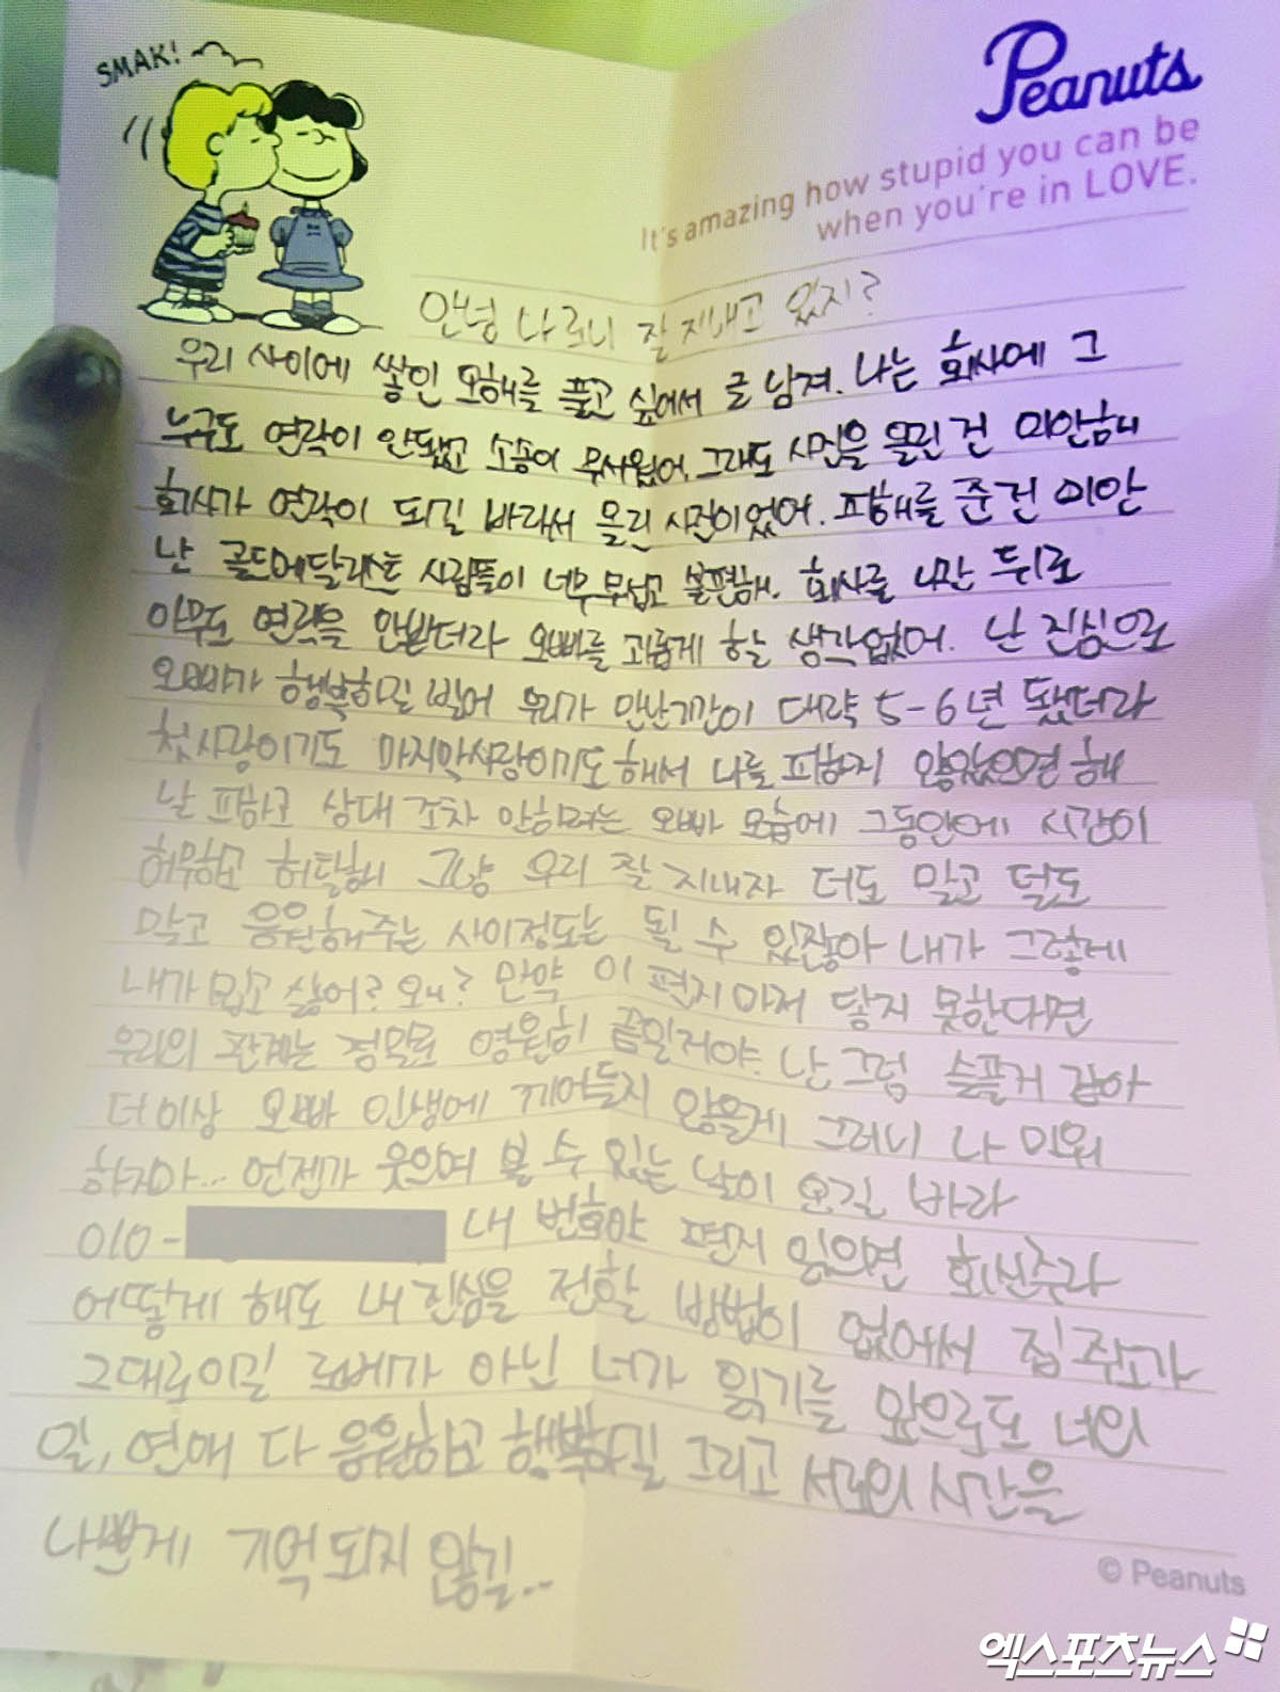 SMAK!
Peanuts
It's amazing how stupid you can be
when you're in LOVE.
안녕 나 로니 잘 지내고 있지?
우리 사이에 쌓인 오해를 풀고 싶어서 글 남겨. 나는 회사에 그
누구도 연락이 안됐고 소송이 무서웠어. 그래도 사진을 올린 건 미안해
회사가 연락이 되길 바래서 올린 사진이었어. 피해를 준건 미안
난 골드메달리스트 사람들이 너무 무섭고 불편해. 회사를 나간 뒤로
아무도 연락을 안받더라 오빠를 괴롭게 할 생각없어. 난 진심으로
오빠가 행복하길 빌어 우리가 만난기간이 대략 5-6년 됐더라
첫사랑이기도 마지막사랑이기도 해서 나를 피하지 않았으면 해
날 피하고 상대 조차 안하려는 오빠 모습에 그동안에 시간이
허무하고 허탈해 그냥 우리 잘 지내자 더도 말고 덜도
말고 응원해주는 사이정도는 될 수 있잖아 내가 그렇게
내가 밉고 싫어? 왜? 만약 이 편지마저 닿지 못한다면
우리의 관계는 정말로 영원히 끝일거야. 난 그럼 슬플거 같아
더이상 오빠 인생에 끼어들지 않을게 그러니 나 미워
하지마... 언젠가 웃으며 볼 수 있는 날이 오길 바라
010- 내 번호야 편지 읽으면 회신주라
어떻게 해도 내 진심을 전할 방법이 없어서 집 주소가
그대로이길 로베가 아닌 너가 읽기를 앞으로도 너의
일, 연애 다 응원하고 행복하길 그리고 서로의 시간을
나쁘게 기억되지 않길..
© Peanuts
엑스포츠뉴스